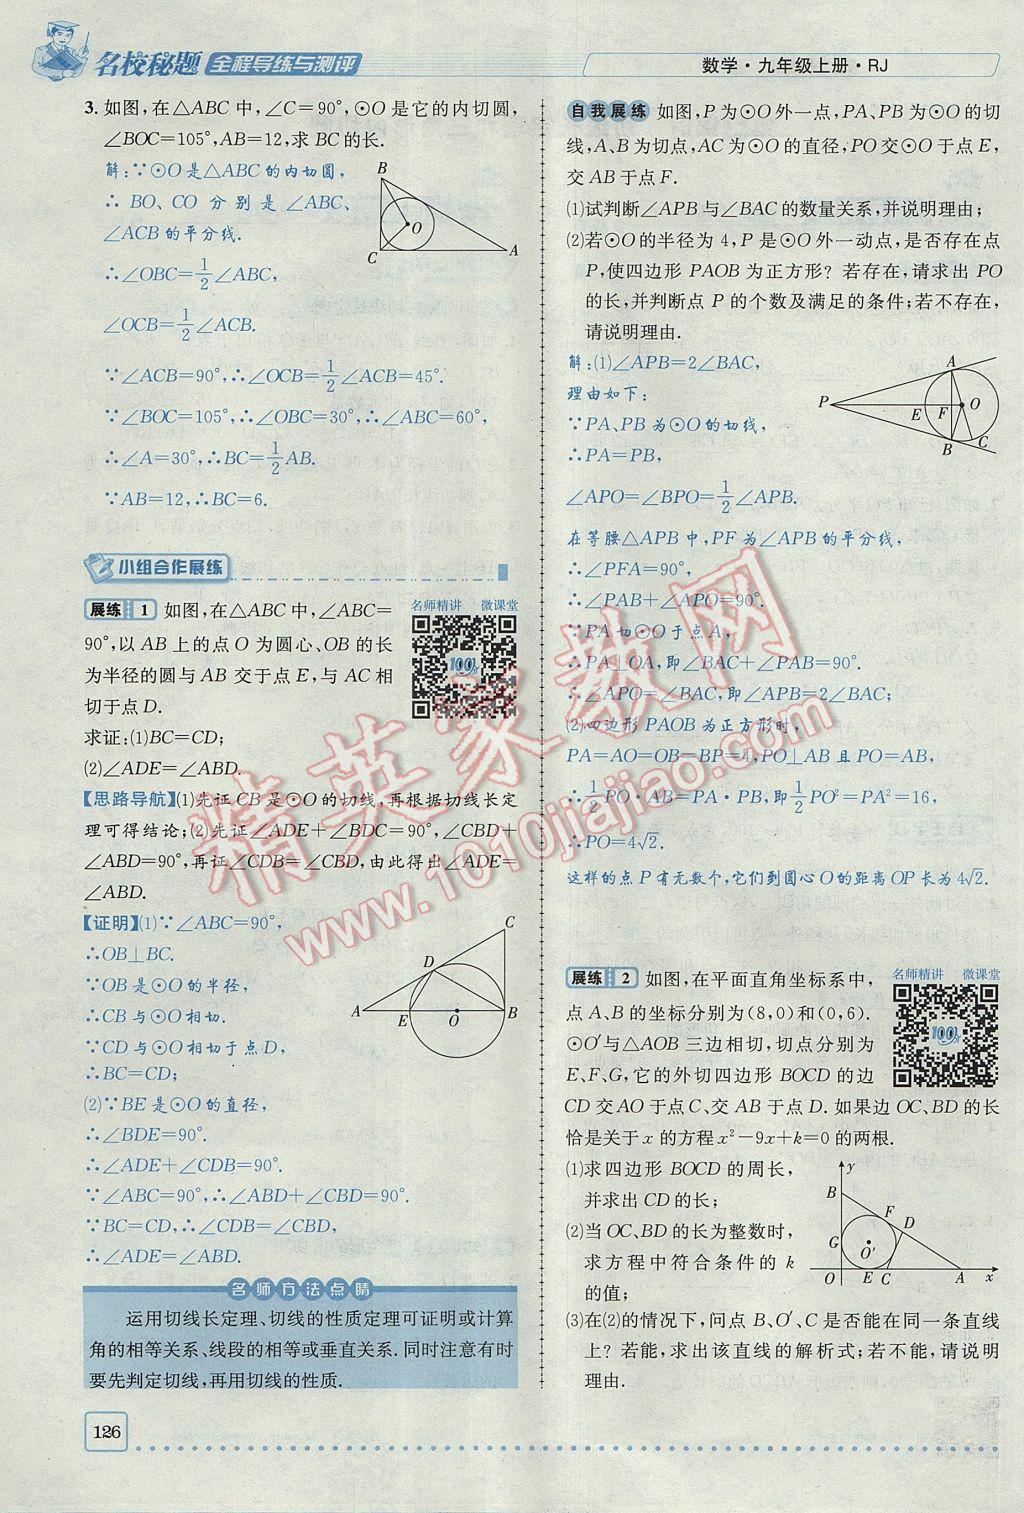 名校秘题 全程导练与测评
数学·九年级上册·RJ
3.如图,在△ABC中,∠C=90°,⊙O是它的内切圆,
∠BOC=105°,AB=12,求BC的长.
解:∵⊙O是△ABC的内切圆,
∴BO、CO分别是∠ABC、
∠ACB的平分线.
∴∠OBC=1/2∠ABC,
∠OCB=1/2∠ACB.
∵∠ACB=90°,∴∠OCB=1/2∠ACB=45°.
∵∠BOC=105°,∴∠OBC=30°,∴∠ABC=60°,
∴∠A=30°,∴BC=1/2AB.
∵AB=12,∴BC=6.
B
O
C
A
小组合作展练
展练 1 如图,在△ABC中,∠ABC=
90°,以AB上的点O为圆心、OB的长
为半径的圆与AB交于点E,与AC相
切于点D.
名师精讲 微课堂
100分
求证:(1)BC=CD;
(2)∠ADE=∠ABD.
【思路导航】(1)先证CB是⊙O的切线,再根据切线长定
理可得结论;(2)先证∠ADE+∠BDC=90°,∠CBD+
∠ABD=90°,再证∠CDB=∠CBD,由此得出∠ADE=
∠ABD.
【证明】(1)∵∠ABC=90°,
∴OB⊥BC.
∵OB是⊙O的半径,
∴CB与⊙O相切.
∵CD与⊙O相切于点D,
∴BC=CD;
(2)∵BE是⊙O的直径,
∴∠BDE=90°.
∴∠ADE+∠CDB=90°.
∵∠ABC=90°,∴∠ABD+∠CBD=90°.
∵BC=CD,∴∠CDB=∠CBD,
∴∠ADE=∠ABD.
C
D
A
E
O
B
名师方法点睛
运用切线长定理、切线的性质定理可证明或计算
角的相等关系、线段的相等或垂直关系.同时注意有时
要先判定切线,再用切线的性质.
126
自我展练 如图,P为⊙O外一点,PA、PB为⊙O的切
线,A、B为切点,AC为⊙O的直径,PO交⊙O于点E,
交AB于点F.
(1)试判断∠APB与∠BAC的数量关系,并说明理由;
(2)若⊙O的半径为4,P是⊙O外一动点,是否存在点
P,使四边形PAOB为正方形?若存在,请求出PO
的长,并判断点P的个数及满足的条件;若不存在,
请说明理由.
解:(1)∠APB=2∠BAC,
理由如下:
∵PA、PB为⊙O的切线,
∴PA=PB,
∠APO=∠BPO=1/2∠APB.
在等腰△APB中,PF为∠APB的平分线,
∴∠PFA=90°,
∴∠PAB+∠APO=90°.
∵PA切⊙O于点A,
∴PA⊥OA,即∠BAC+∠PAB=90°.
∴∠APO=∠BAC,即∠APB=2∠BAC;
(2)四边形PAOB为正方形时,
PA=AO=OB=BP=4,PO⊥AB且PO=AB,
∴1/2PO·AB=PA·PB,即1/2PO²=PA²=16,
∴PO=4√2.
这样的点P有无数个,它们到圆心O的距离OP长为4√2.
A
P
E
F
O
B
C
展练 2 如图,在平面直角坐标系中,
点A、B的坐标分别为(8,0)和(0,6).
⊙O′与△AOB三边相切,切点分别为
E、F、G,它的外切四边形BOCD的边
CD交AO于点C、交AB于点D.如果边OC、BD的长
恰是关于x的方程x²-9x+k=0的两根.
名师精讲 微课堂
100分
(1)求四边形BOCD的周长,
并求出CD的长;
(2)当OC、BD的长为整数时,
求方程中符合条件的k
的值;
(3)在(2)的情况下,问点B、O′、C是否能在同一条直线
上?若能,求出该直线的解析式;若不能,请说明
理由.
y
B
F
D
G
O′
O
E
C
A
x
精英家教网
www.1010jiajiao.com